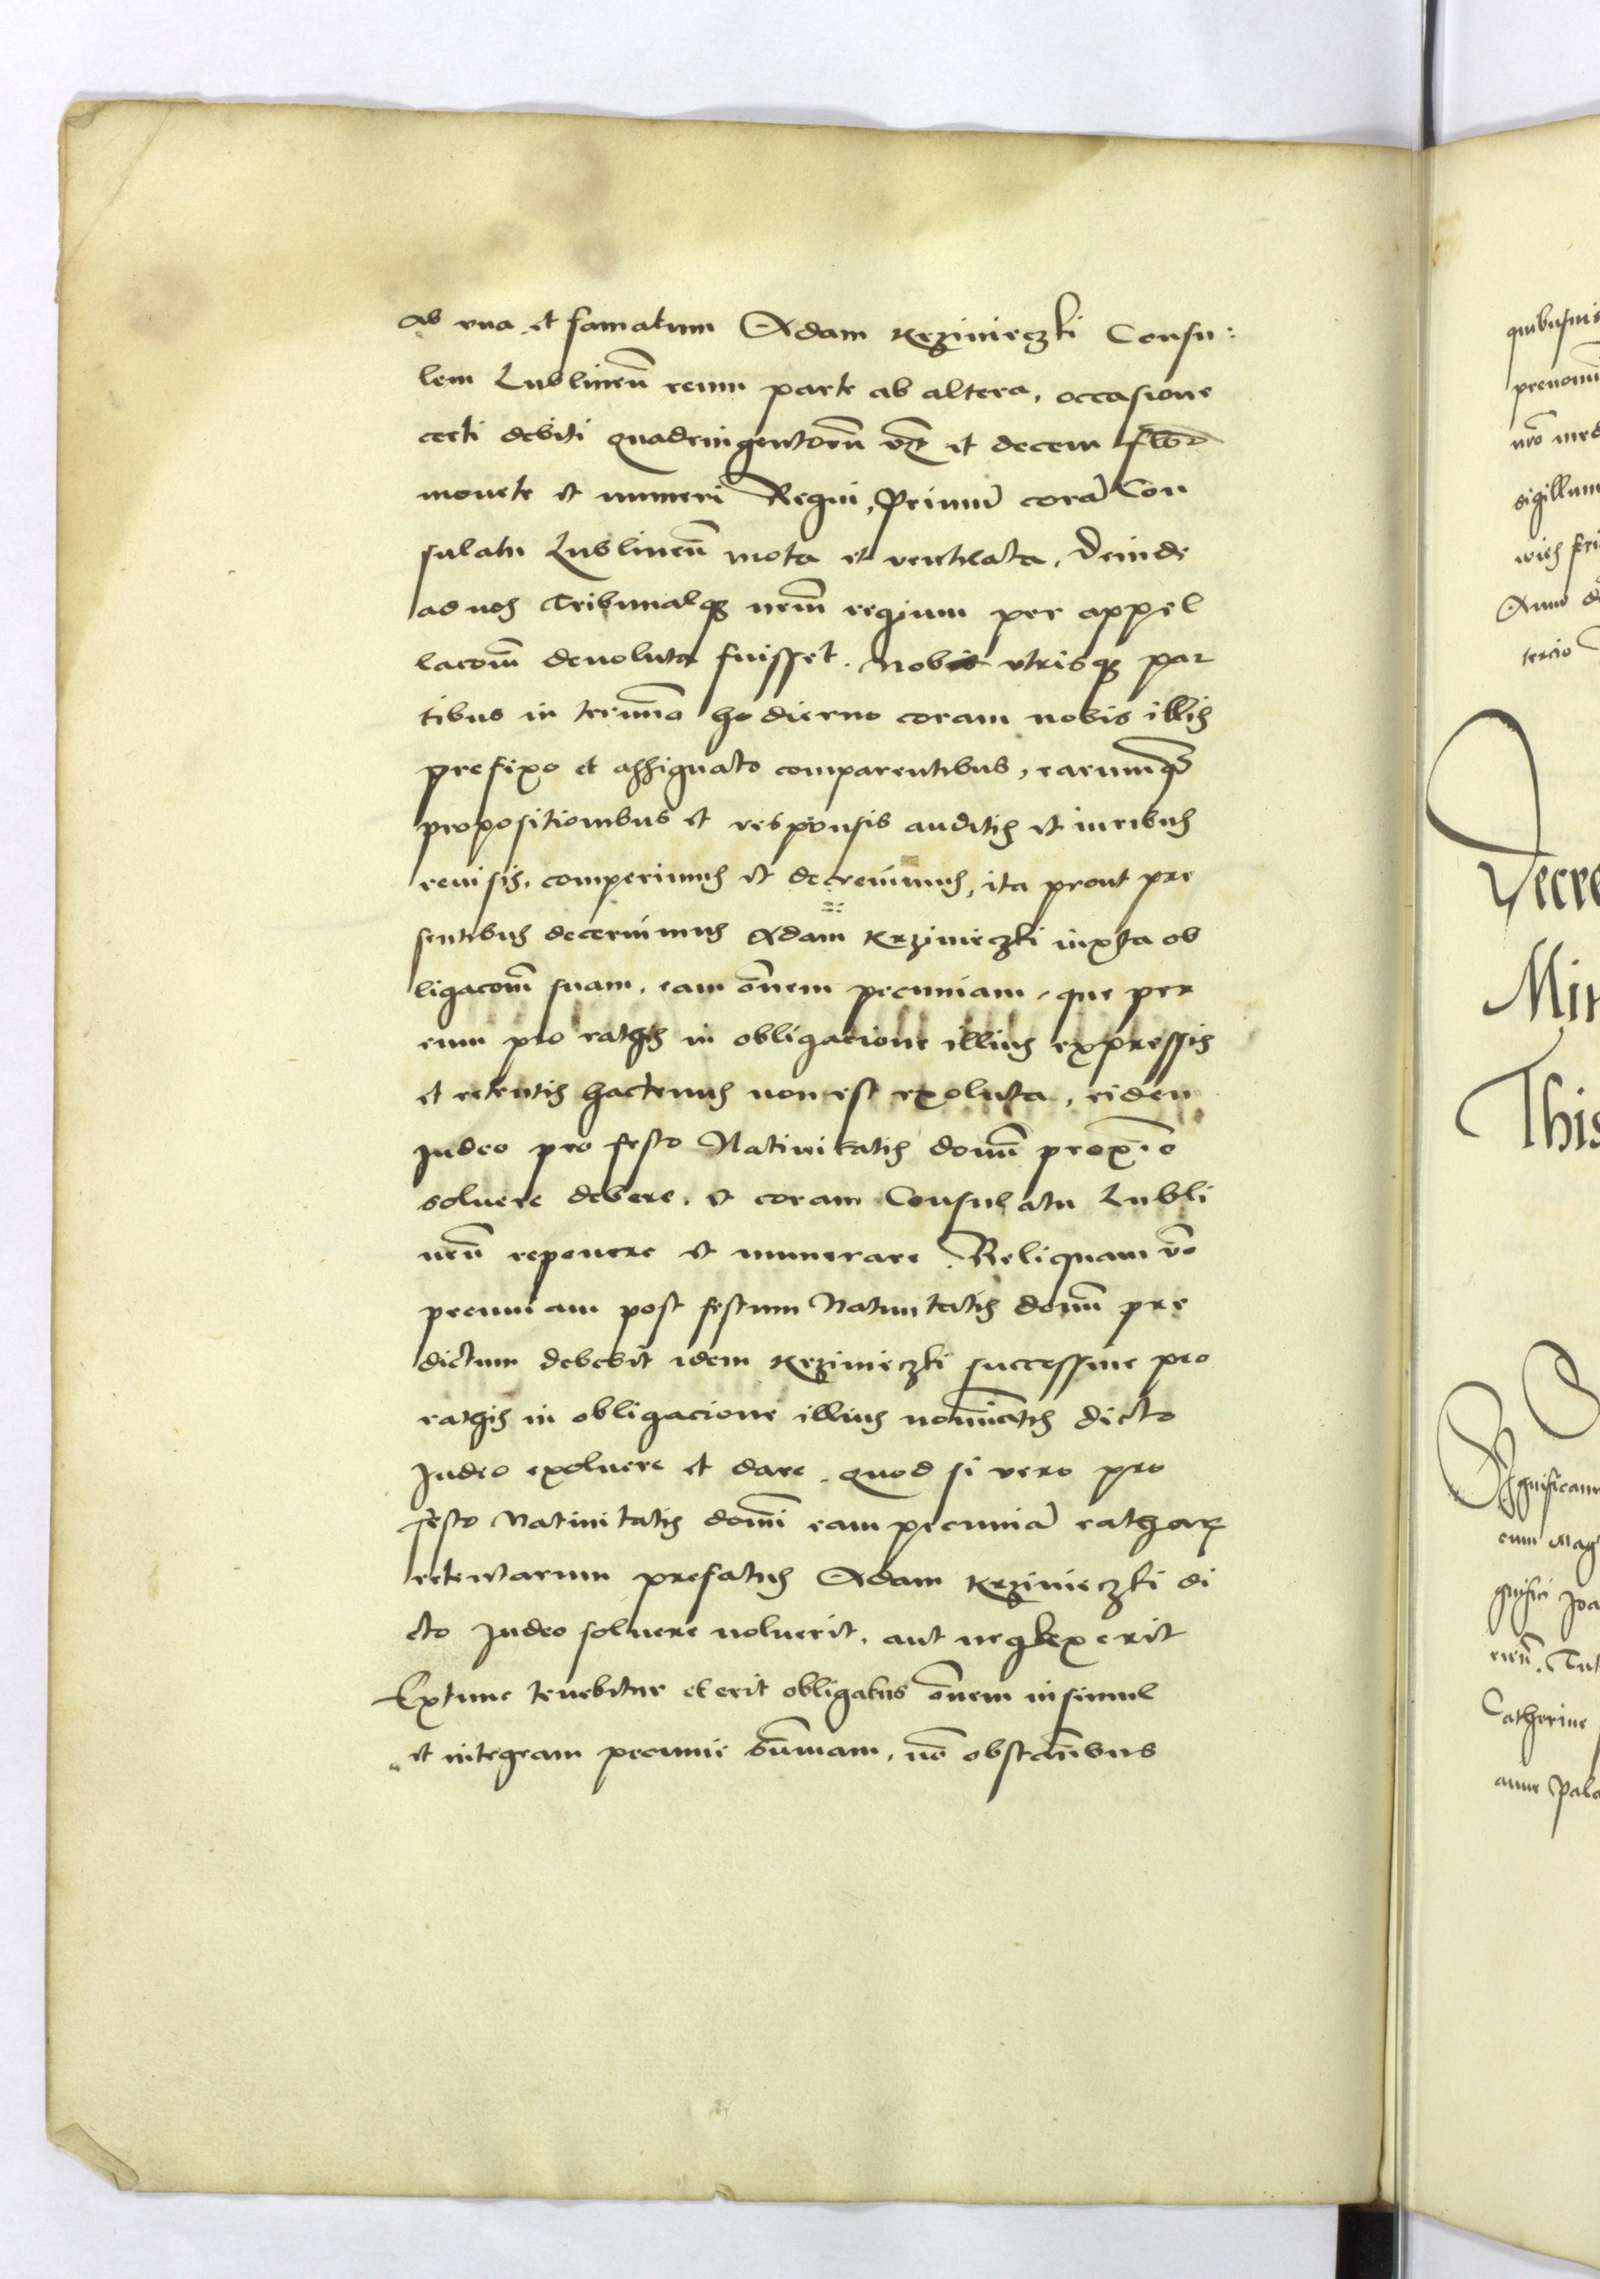 ab vna et famatum Adam Krzinieczki Consu:
lem Lublineñ reum parte ab altera, occasione
certi debiti quadringentorũ et decem flor
monete et numeri Regni, Primũ corã Con
sulatu Lublineñ mota et ventilata, Deinde
ad nos Tribunalq3 nrm̃ regium per appel
lacoñ deuoluta fuisset. Nobis vtrisq3 par
tibus in termĩno hodierno coram nobis illis
prefixo et assignato comparentibus, earumq3
propositionibus et responsis auditis et iuribus
reuisis, comperimus et decreuimus, ita prout pre
sentibus decernimus Adam Krzinieczki iuxta ob
ligacoñ suam, eam õnem pecuniam, que per
eum pro rathis in obligacione illius expressis
et retentis hactenus non est exoluta, eidem
Judeo pro festo Natiuitatis domĩ proximo
soluere debere, et coram Consulatu Lubli
neñ reponere et numerare. Reliquam vo
pecuniam post festum Natiuitatis domĩ pre
dictum debebit idem Krzinieczki successiue pro
rathis in obligacione illius nomĩnatis dicto
Judeo exoluere et dare. Quod si vero pro
festo Natiuitatis domĩ eam pecuniã rathar
retentarum prefatus Adam Krzinieczki di
cto Judeo soluere noluerit, aut neglexerit
Extunc tenebitur et erit obligatus õnem insimul
et integram pecunie sũmam, nõ obstañbus
quibusuis
sigillum
Anno
tercio
Decre
This
cum Mag
gnifici Joa
Catherine
anne Pala